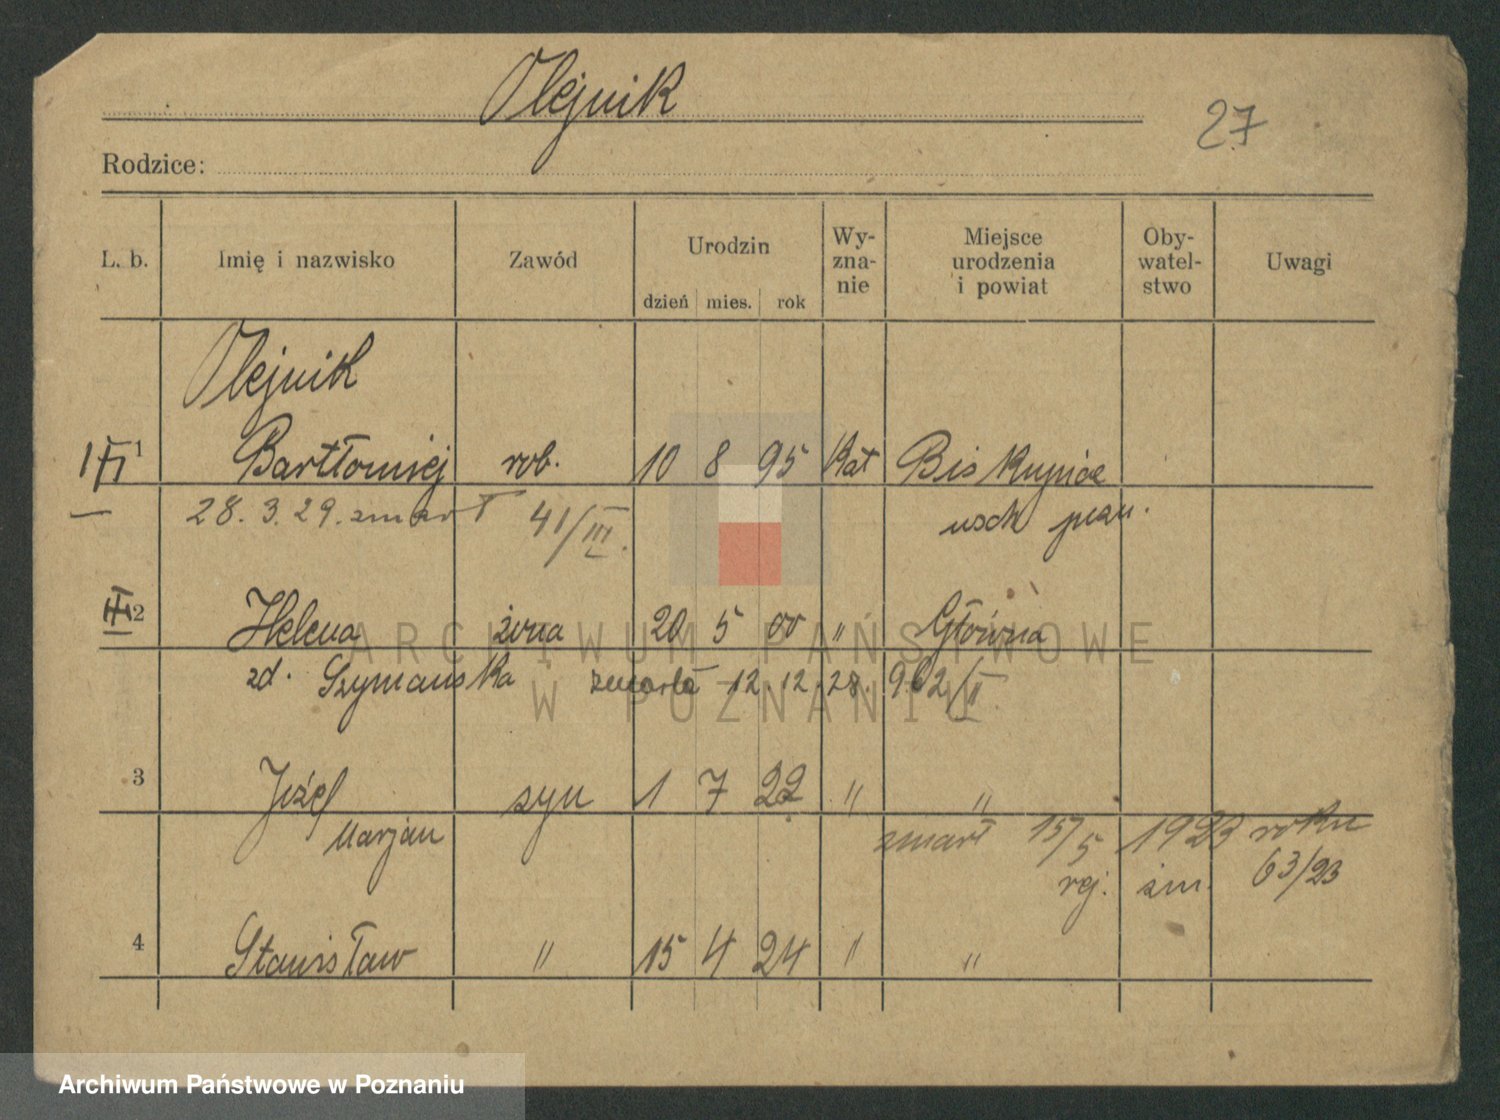 Olejnik
27
Rodzice:
L. b. Imię i nazwisko Zawód Urodzin dzień mies. rok Wy-zna-nie Miejsce urodzenia i powiat Oby-watel-stwo Uwagi
Olejnik
1 Bartłomiej rob. 10 8 95 kat Biskupice
28. 3. 29. zmarł 41/III. wsch pozn.
2 Helena żona 20 5 00 " Główna
zd. Szymańska zmarła 12 12. 28. 962/II
3 Józef syn 1 7 22 " "
Marjan zmarł 15/5 1923 roku
rej. zm. 63/23
4 Stanisław " 15 4 24 " "
ARCHIWUM PAŃSTWOWE
W POZNANIU
Archiwum Państwowe w Poznaniu